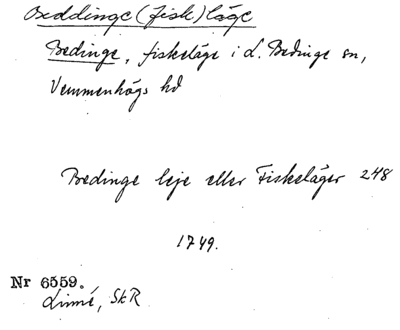 Beddinge (fisk)läge
Bedinge, fiskeläge i L. Bedinge sn,
Vemmenhögs hd
Bedinge leje eller Fiskeläger 248
1749.
Nr 6559.
Linné, SkR